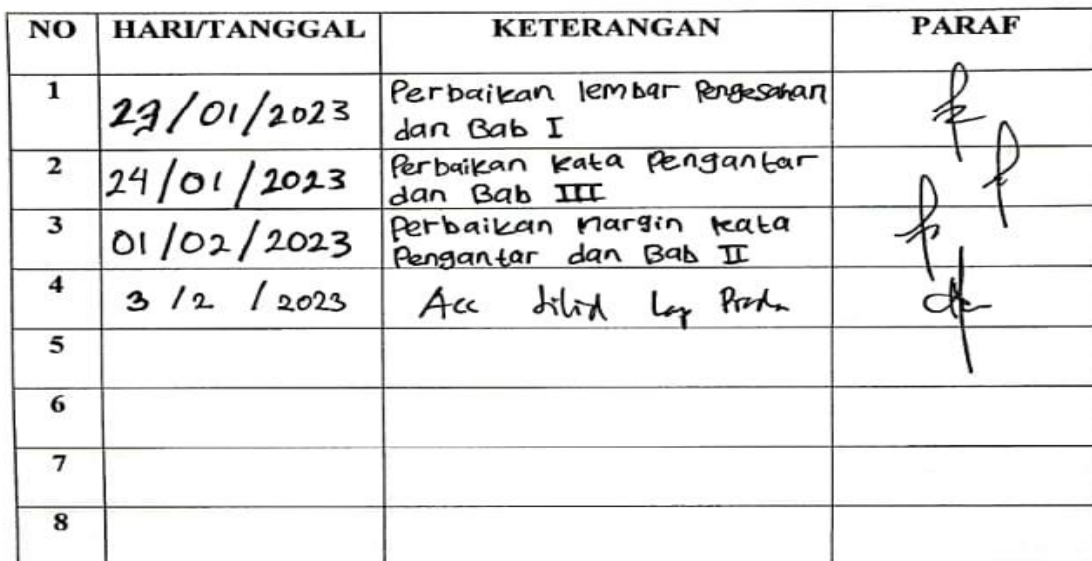 NO HARI/TANGGAL KETERANGAN PARAF
1 23/01/2023 Perbaikan lembar Pengesahan
dan Bab I
2 24/01/2023 Perbaikan kata Pengantar
dan Bab III
3 01/02/2023 Perbaikan Margin kata
Pengantar dan Bab II
4 3/2/2023 Acc Lap
5
6
7
8